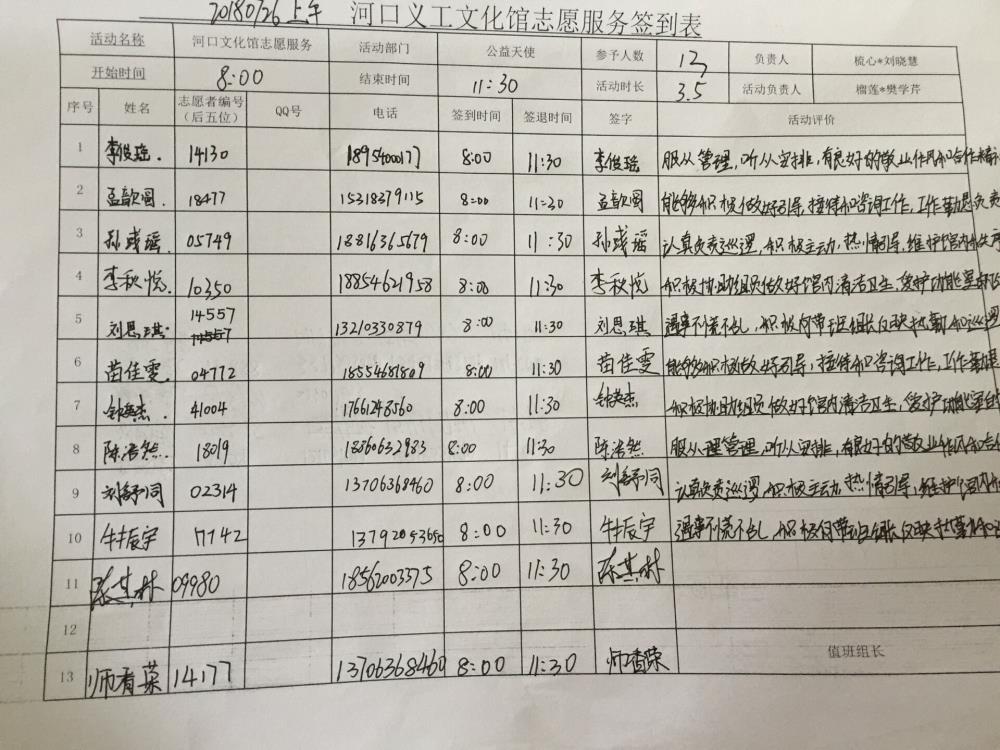 20180126上午 河口义工文化馆志愿服务签到表
活动名称 河口文化馆志愿服务 活动部门 公益天使 参予人数 12 负责人 梳心*刘晓慧
开始时间 8:00 结束时间 11:30 活动时长 3.5 活动负责人 榴莲*樊学芹
序号 姓名 志愿者编号（后五位） QQ号 电话 签到时间 签退时间 签字 活动评价
1 李俊瑶. 14130 1895400177 8:00 11:30 李俊瑶 服从管理,听从安排,有良好的敬业作风和合作精
2 孟歆圆. 18477 15318379115 8:00 11:30 孟歆圆 能够积极做好引导,接待和咨询工作,工作勤恳负责
3 孙彧瑶 05749 18816365679 8:00 11:30 孙彧瑶 认真负责巡逻,积极主动,热情引导,维护馆内秩序
4 李秋悦. 10350 18854621958 8:00 11:30 李秋悦 积极协助组员做好馆内清洁卫生,爱护功能室
5 刘思琪. 14557 13210330879 8:00 11:30 刘思琪 遇事不慌不乱,积极向带班组长反映执勤和巡逻
6 苗佳雯. 04772 18554681809 8:00 11:30 苗佳雯 能够积极做好引导,接待和咨询工作,工作勤恳
7 钟英杰. 41004 17661248560 8:00 11:30 钟英杰 积极协助组员做好馆内清洁卫生,爱护功能室的
8 陈浩然. 18019 18660632983 8:00 11:30 陈浩然 服从理管理,听从安排,有良好的敬业作风和合作
9 刘舒同 02314 13706368460 8:00 11:30 刘舒同 认真负责巡逻,积极主动,热情引导,维护馆内
10 牛辰宇 17142 13792053650 8:00 11:30 牛辰宇 遇事不慌不乱,积极向带班组长反映执勤和
11 陈其林 09980 18562003375 8:00 11:30 陈其林
12
13 师香荣 14177 13706368460 8:00 11:30 师香荣 值班组长